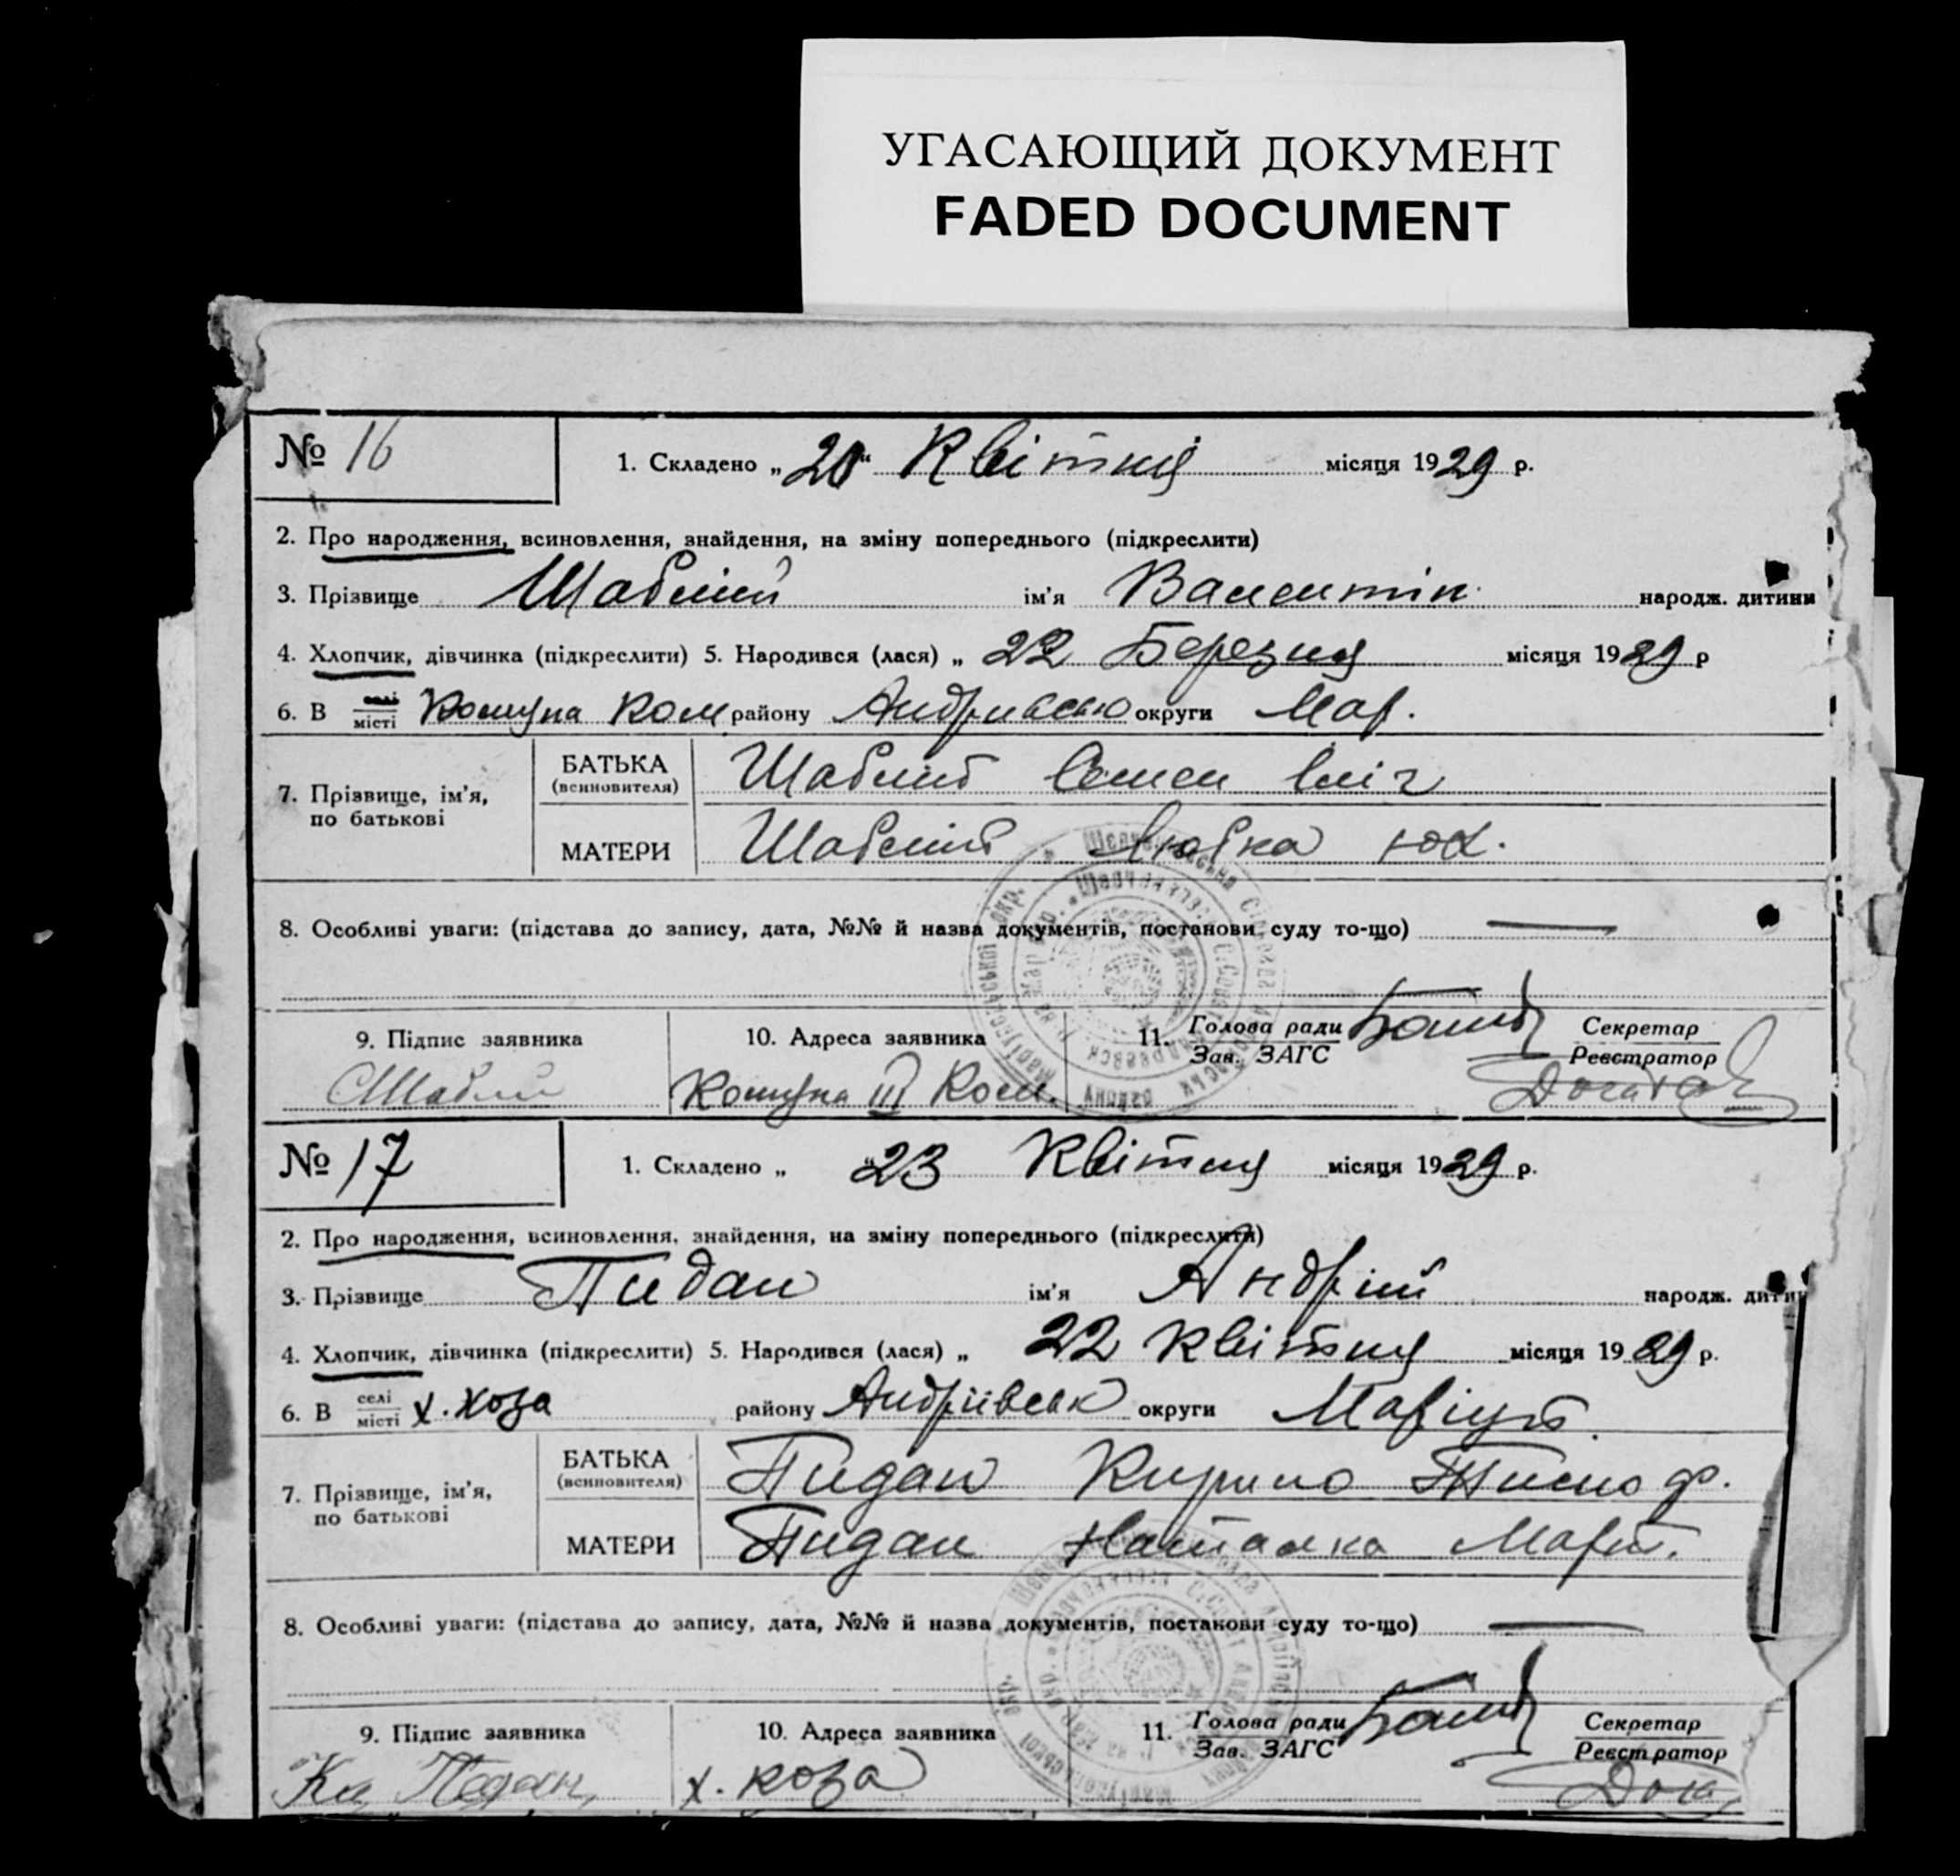 УГАСАЮЩИЙ ДОКУМЕНТ
FADED DOCUMENT
№ 16
1. Складено „ 20 “ Квітня місяця 1929 р.
2. Про народження, всиновлення, знайдення, на зміну попереднього (підкреслити)
3. Прізвище Шаблий ім'я Валентін народж. дитини
4. Хлопчик, дівчинка (підкреслити) 5. Народився (лася) „ 22 Березня місяця 1929 р
6. В селі місті Комуна Ком району Андривсько округи Мар.
7. Прізвище, ім'я, по батькові
БАТЬКА (всиновителя) Шаблий Семен
МАТЕРИ Шаблий Любка
8. Особливі уваги: (підстава до запису, дата, №№ й назва документів, постанови суду то-що)
9. Підпис заявника 10. Адреса заявника 11. Голова ради Зав. ЗАГС Секретар Реєстратор
Шаблий Комуна III Ком.
№ 17
1. Складено „ “23 Квітня місяця 1929 р.
2. Про народження, всиновлення, знайдення, на зміну попереднього (підкреслити)
3. Прізвище Пидан ім'я Андрий народж. дитини
4. Хлопчик, дівчинка (підкреслити) 5. Народився (лася) „ 22 Квітня місяця 1929 р.
6. В селі місті х. Коза району Андріївськ округи Маріуп.
7. Прізвище, ім'я, по батькові
БАТЬКА (всиновителя) Пидан Кирило Тимоф.
МАТЕРИ Пидан Наталка Март.
8. Особливі уваги: (підстава до запису, дата, №№ й назва документів, постанови суду то-що)
9. Підпис заявника 10. Адреса заявника 11. Голова ради Зав. ЗАГС Секретар Реєстратор
Пидан х. Коза